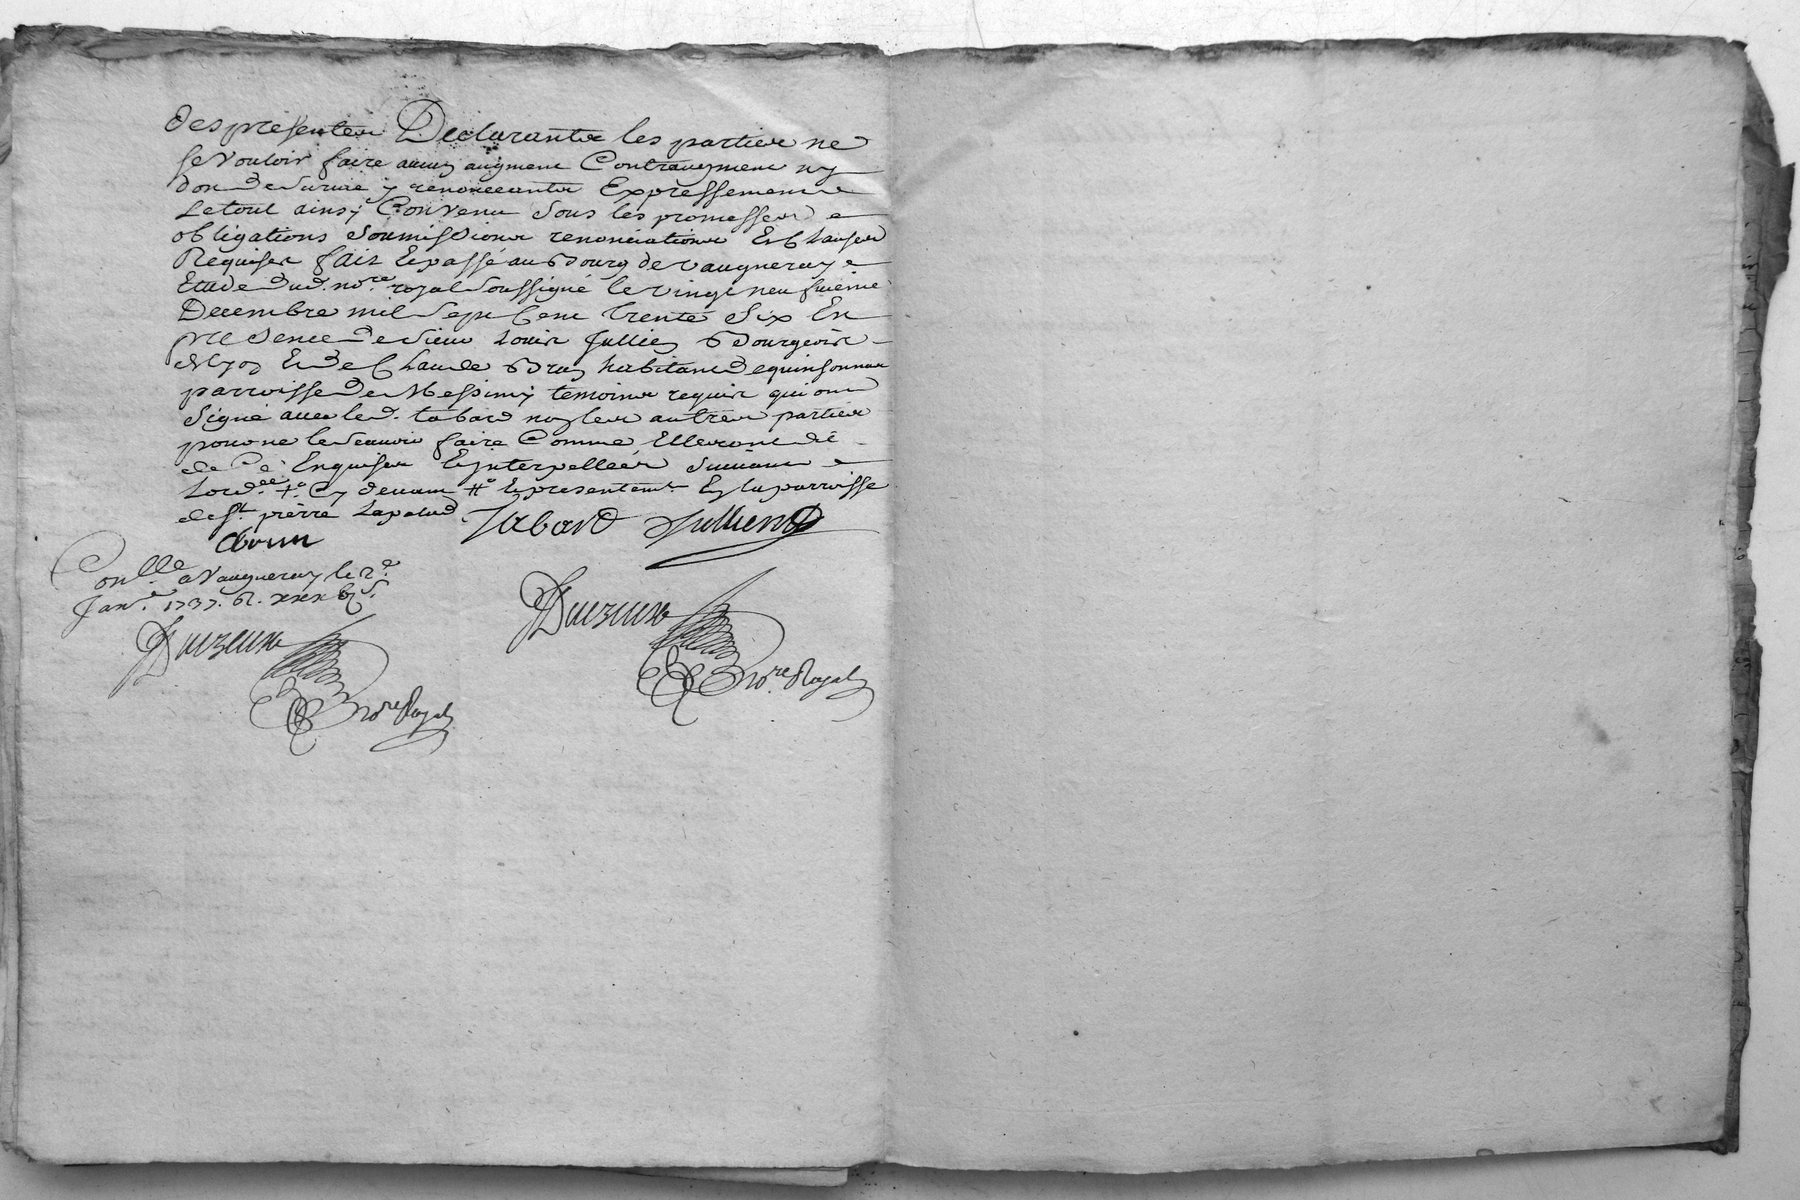 des presentes Declarantes les parties ne
se vouloir faire aucun augment Contraugment ny
don de survie y renonceantes Expressement
Le tout ainsy Convenu sous les promesses
obligations soumissions renonciations Et Clauses
Requises fait Et passé au Bourg de vaugneray
Etude dud. no.re royal soussigné le vingt neufvieme
Decembre mil sept Cent trente six En
presence de sieur Louis Jullien Bourgeois
de Lyon Et de Claude Brun habitant de quinsonnat
parroisse de Messimy temoins requis qui ont
signé avec led. tabard non les autres parties
pour ne le scavoir faire Comme Elles ont dit
de Ce Enquises Et Interpellées suivant
Lord.ce + Cy devant # Et presentem.t En la parroisse
de S.t pierre Lapalud
Tabard Jullien
Brun
Con.llé a Vaugneray le 2.e
Janv.r 1737.
Duvzeux
no.re Royal
Duvzeux
no.re Royal